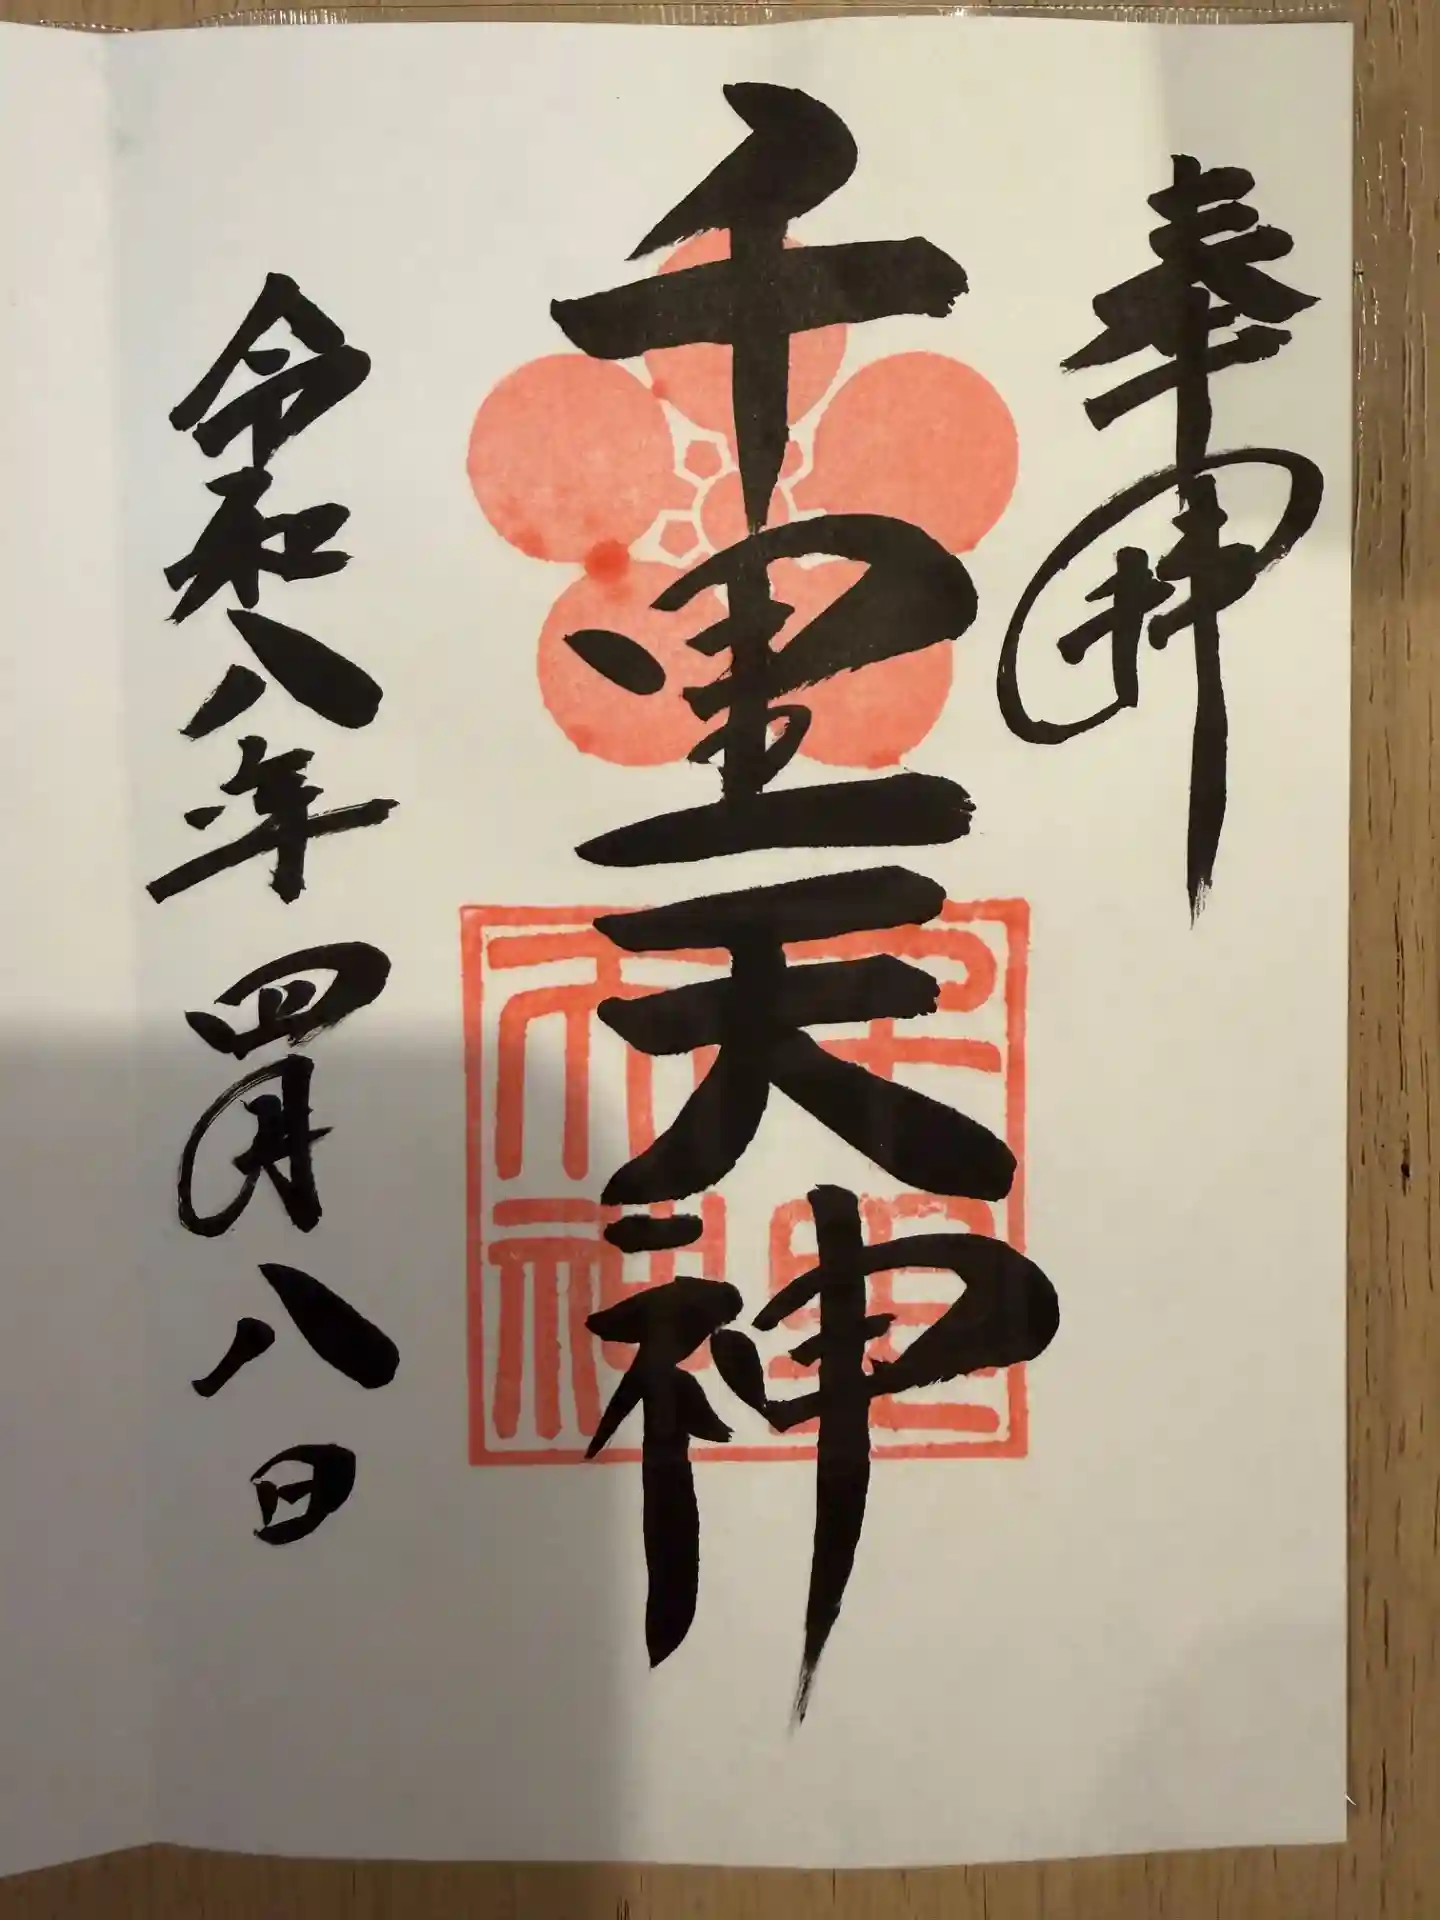 奉拝
千里天神
令和八年四月八日
千里神社